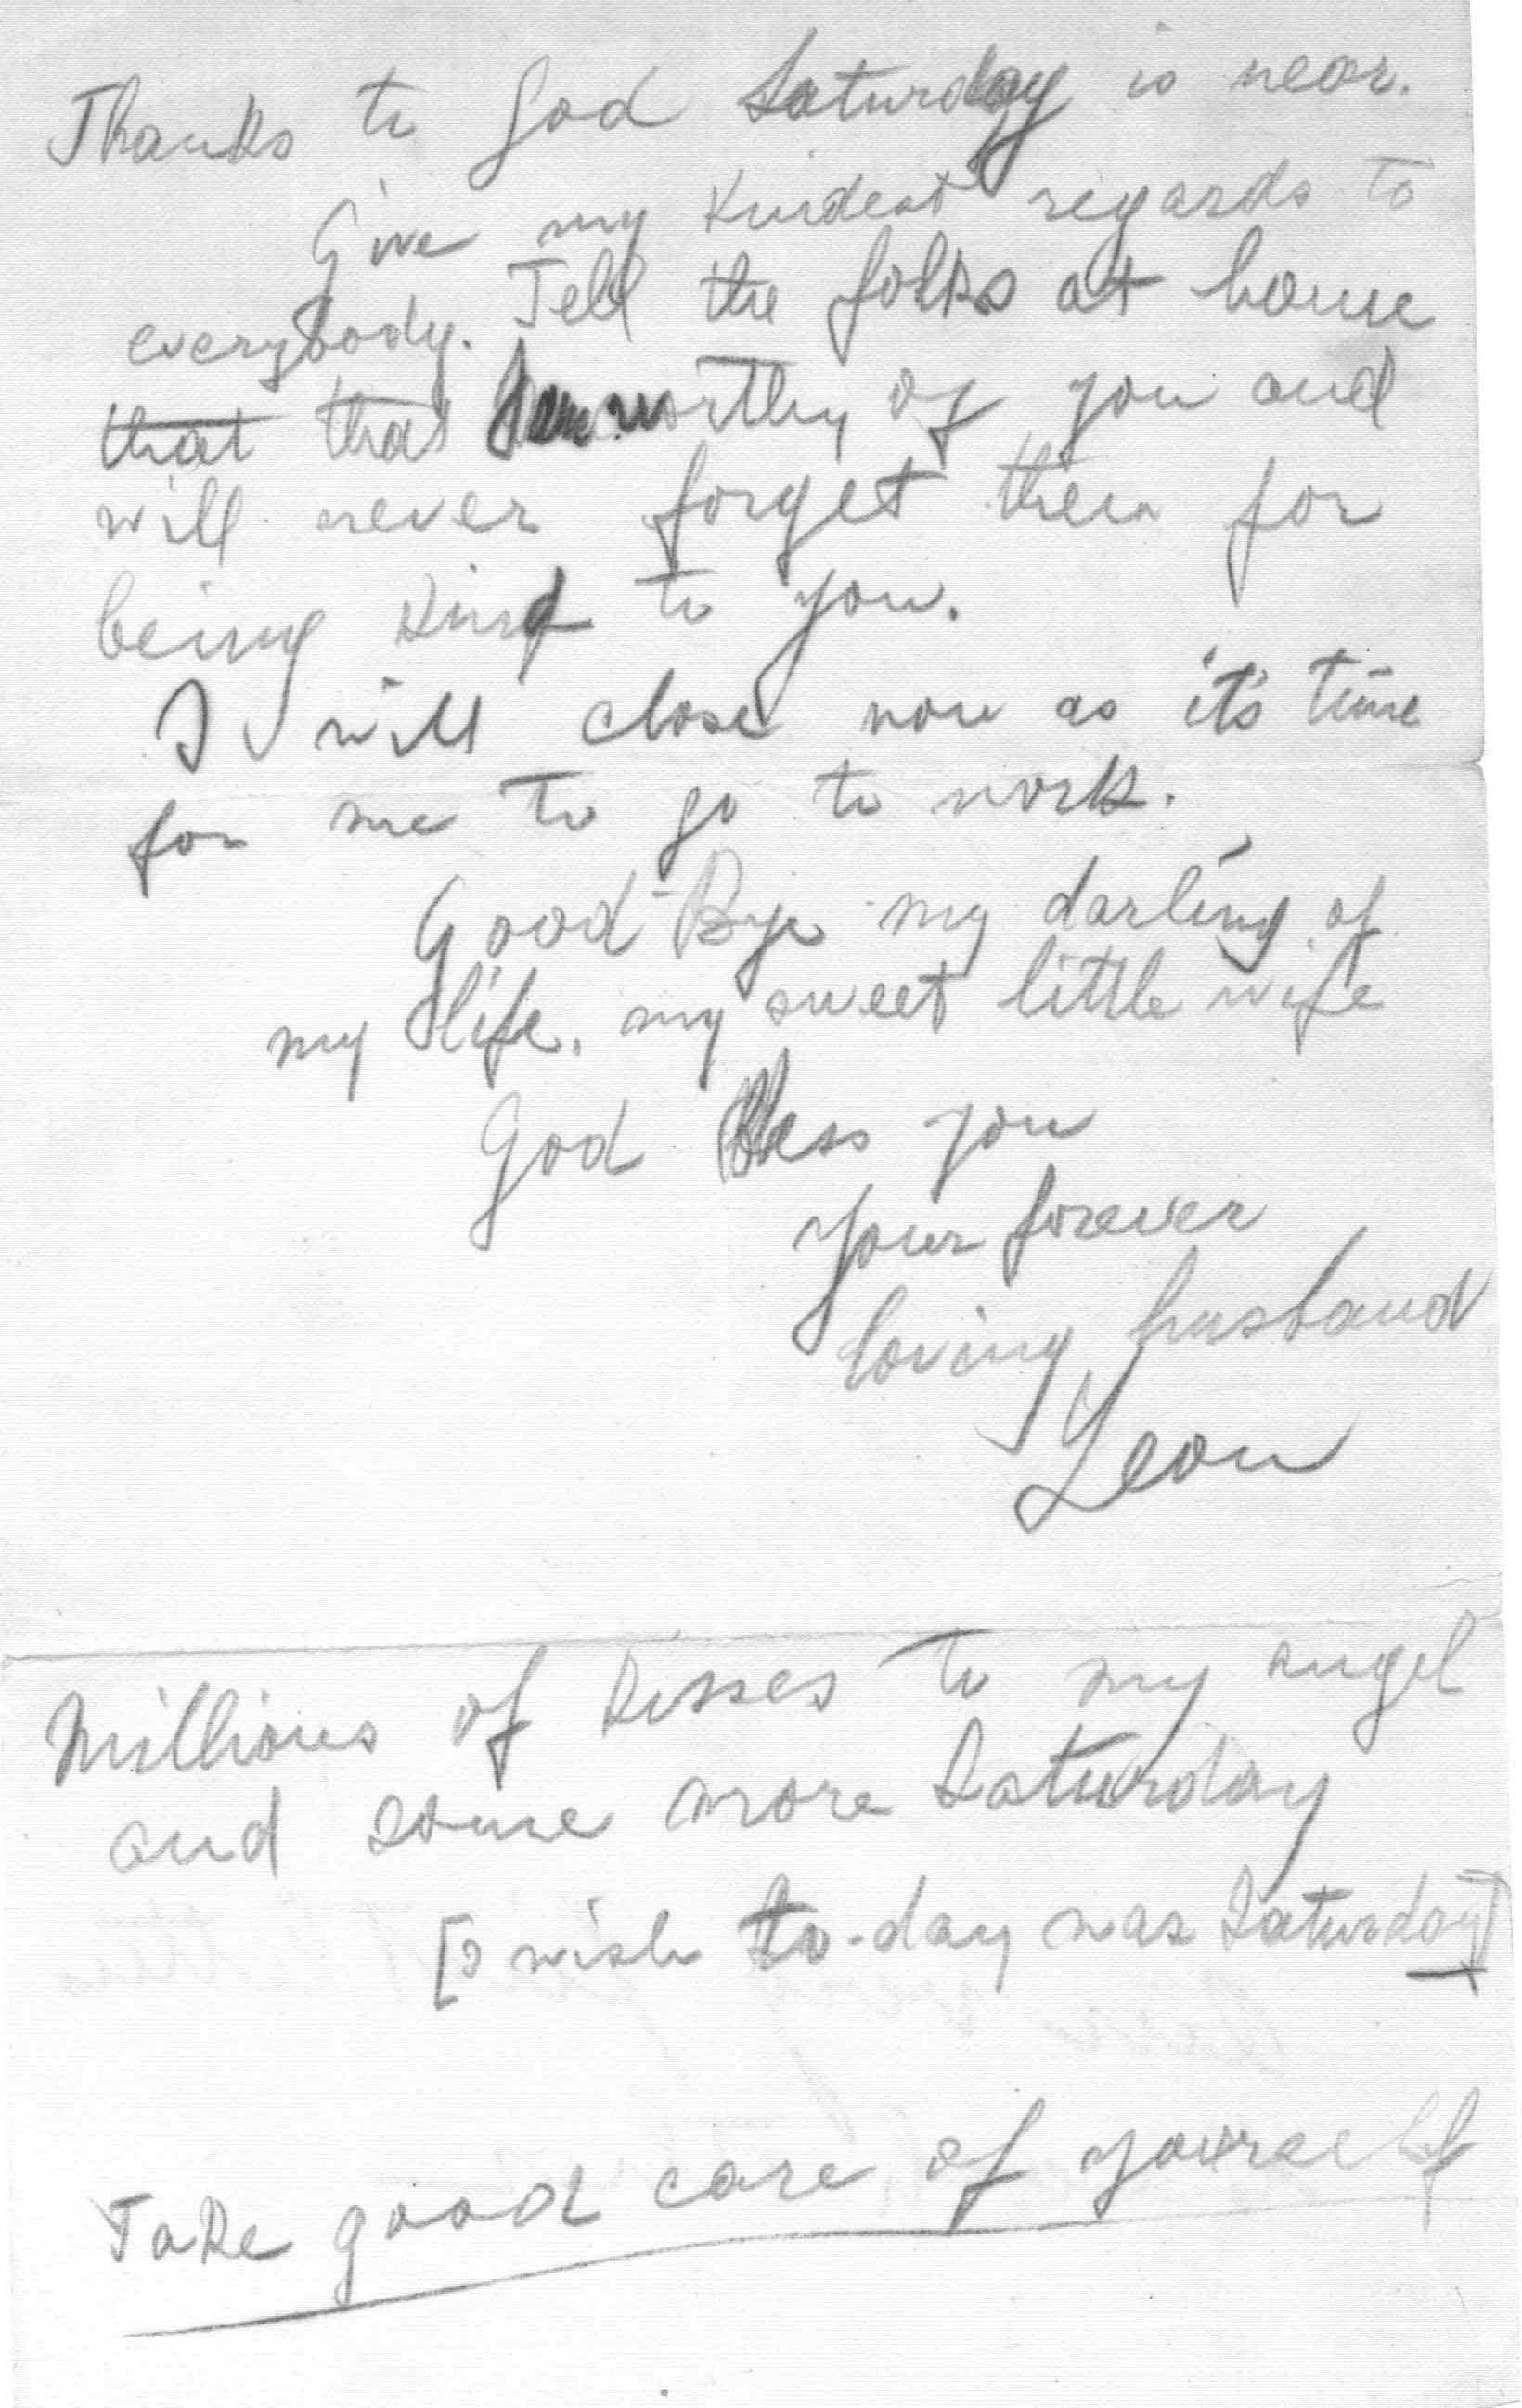 Thanks to God Saturday is near.
Give my kindest regards to
everybody. Tell the folks at home
that that worthy of you and
will never forget them for
being kind to you.
I will close now as it's time
for me to go to work.
Good-Bye my darling of
my life, my sweet little wife
God Bless you
Your forever
loving husband
Leon
Millions of kisses to my angel
and some more Saturday
[I wish to-day was Saturday]
Take good care of yourself